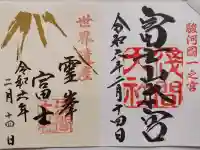 駿河國一之宮
富士山本宮
淺間大社
令和六年二月十四日
世界遺産
霊峯
富士
令和六年
二月十四日